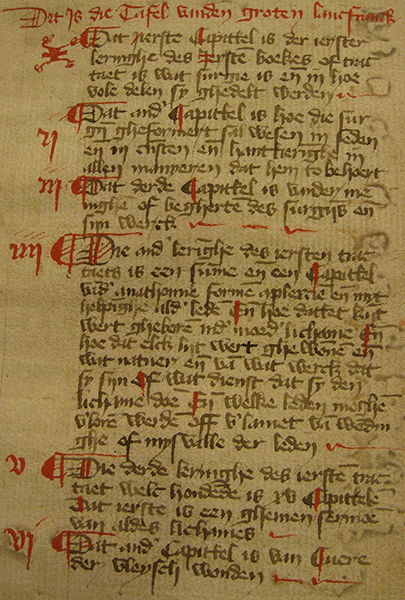 Dit is die Tafel vanden groten lancfranck
Dat ierste Capittel is der ierster
leringhe des Iersten boekes of trac
taet is wat surgie is en̄ in hoe
vole delen sy ghedelt werden
ii Dat and' Capittel is hoe die sur
giī gheformert sal wesen in seden
en̄ in consten en̄ hantieringhe in
allen manyeren dat hem to behoert
iii Dat derde Capittel is vander me
nighe of begherte des surgijs en̄
sijn werck
iiii Die and' leringhe des iersten trac
taets is een sūme en̄ een Capittel
vād' anathomie forme en̄ nut
helpighe al d' lede En̄ hoe dattet kijt
wert ghebore ind' moed' lichame En̄
hoe dat elck lijt wert ghewōnē en̄
wat natuer en̄ vā wat werck dat
sy sijn Of wat dienst dat sy den
lichame doe En̄ welke leden moghē
v'lorē werdē off v'lamet vā wōdin
ghe of mysvalle der leden
v Die derde leringhe des ierstē trac
taet welc houdēde is xv Capittele
Dat ierste is een ghemen sermoē
van aldes lichames
vi Dat and' Capittel is van Cuere
der vleysch wonden